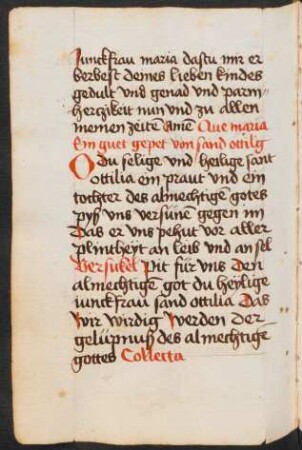 Junckfrau maria dastu mir er
berbest deines lieben kindes
gedult vnd genad vnd parm
herczikeit nun vnd zu allen
meinen zeitē amē Aue maria
Ein guet gepet von sand ottilg
O du selige vnd heilige sant
ottilia ein praut vnd ein
tochter des almechtigē gotes
pyß vns versünē gegen im
Das er vns pehut vor aller
plintheyt an leib vnd an sel
Versickel Pit für vns Den
almechtigē got du heylige
iunckfrau sand ottilia Das
Wir wirdig Werden Der
gelüpnuß des almechtigē
gottes Collecta